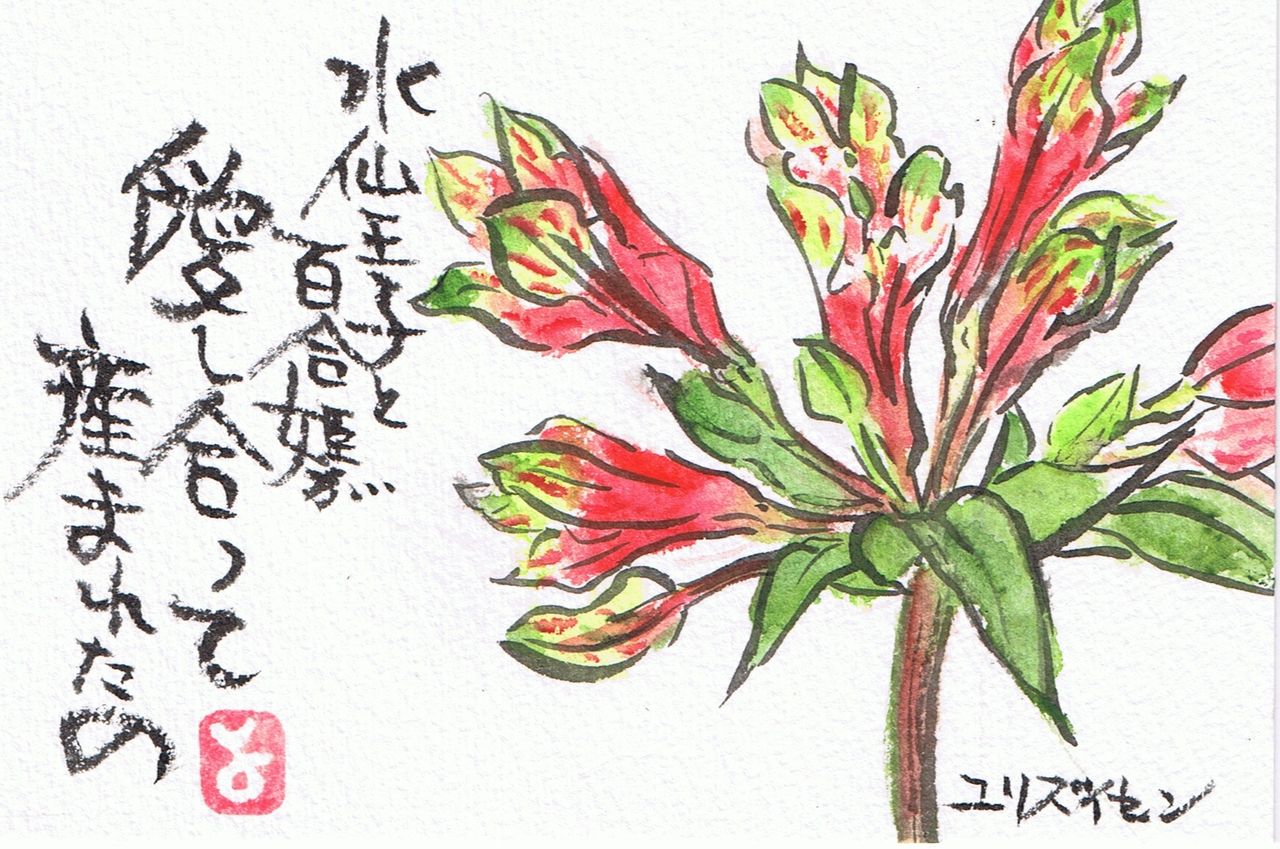 水仙王子と
百合媛
愛し合って
産まれたの
よ
ユリズイセン